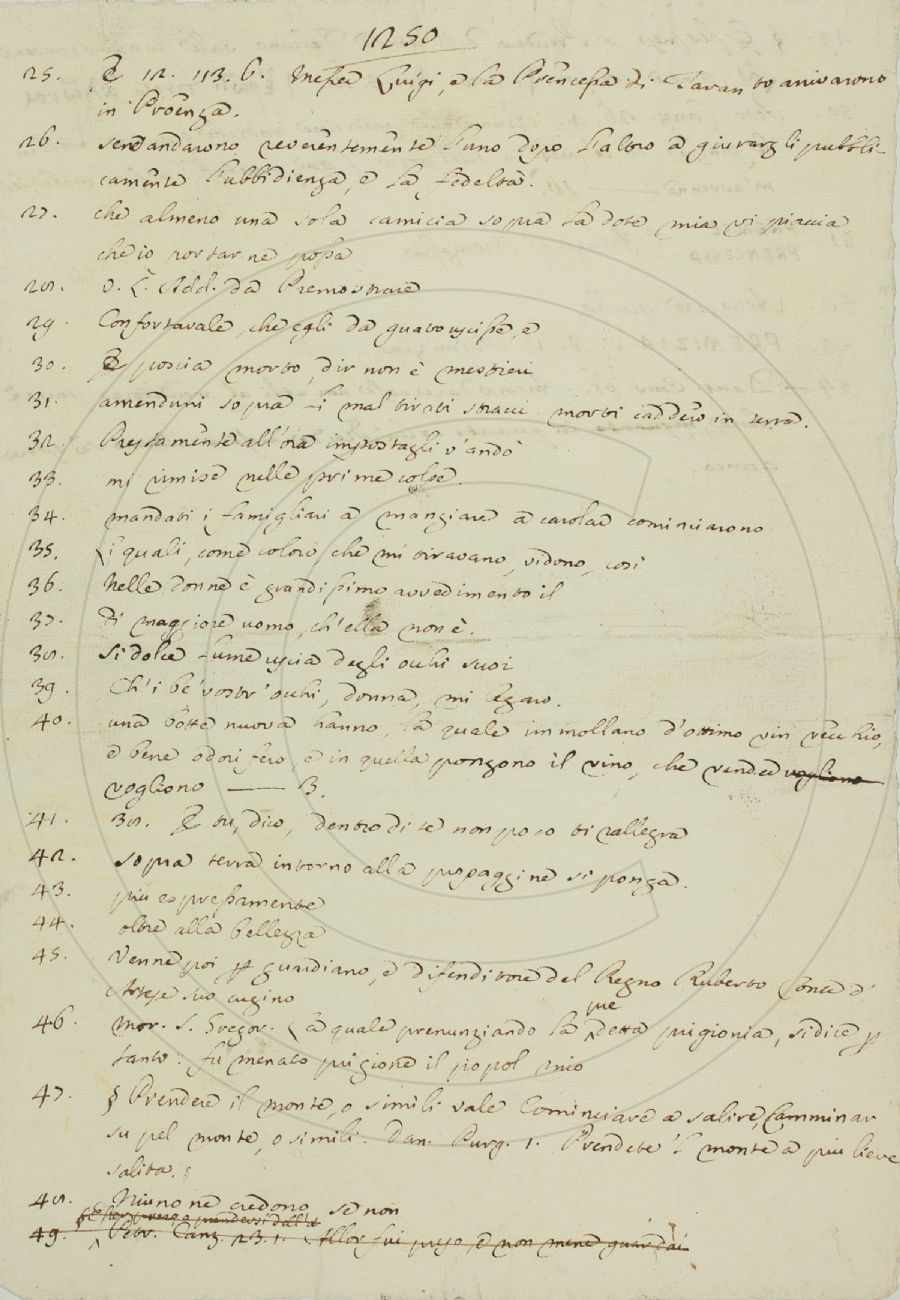 1250
25. E 12. 113. 6. Messer Luigi, e la Prencessa di Taranto arrivarono
in Proenza.
26. sen andarono reverentemente l'uno dopo l'altro a giurargli pubbli-
camente l'ubbidienza, e la fedeltà.
27. che almeno una sola camicia sopra la dote mia vi piaccia
che io portar ne possa
28. v. L. Add. da Premostrare
29. Confortavale, che egli da guato uscisse, e
30. E poscia morto, dir non è mestieri
31. amenduni sopra li mal tirati stracci morti caddero in terra.
32. Prestamente all'ora impostagli v'andò
33. mi rimise nelle prime colpe.
34. mandati i famigliari a mangiare a carolare cominciarono
35. Li quali, come coloro, che mi tiravano, vidono, così
36. Nelle donne è grandissimo avvedimento il
37. di maggiore uomo, ch'ella non è.
38. Si dolce lume uscia degli occhi suoi
39. Ch'i be' vostr'occhi, donna, mi legaro.
40. una botte nuova hanno, la quale immollano d'ottimo vin vecchio,
e bene odorifero, e in quella pongono il vino, che vender vogliono
vogliono —— B.
41. 38. E tu, dico, dentro di te non poco ti rallegra
42. sopra terra intorno alla propaggine si ponga.
43. più espressamente
44. oltre alla bellezza
45. Venne poi p guardiano, e difenditore del Regno Ruberto Conte d'
Artese suo cugino
46. Mor. S. Gregor. La quale prenunziando la predetta prigionia, si dice p
tanto: fu menato prigione il popol mio
47. § Prendere il monte, o simili vale Cominciare a salire, Camminar
su pel monte, o simili. Dan. Purg. 1. Prendete 'l monte a più lieve
salita.
48. Niuno ne credono se non
49. Petr. Canz. 23. 1. Allor fui preso, e non mene guardai